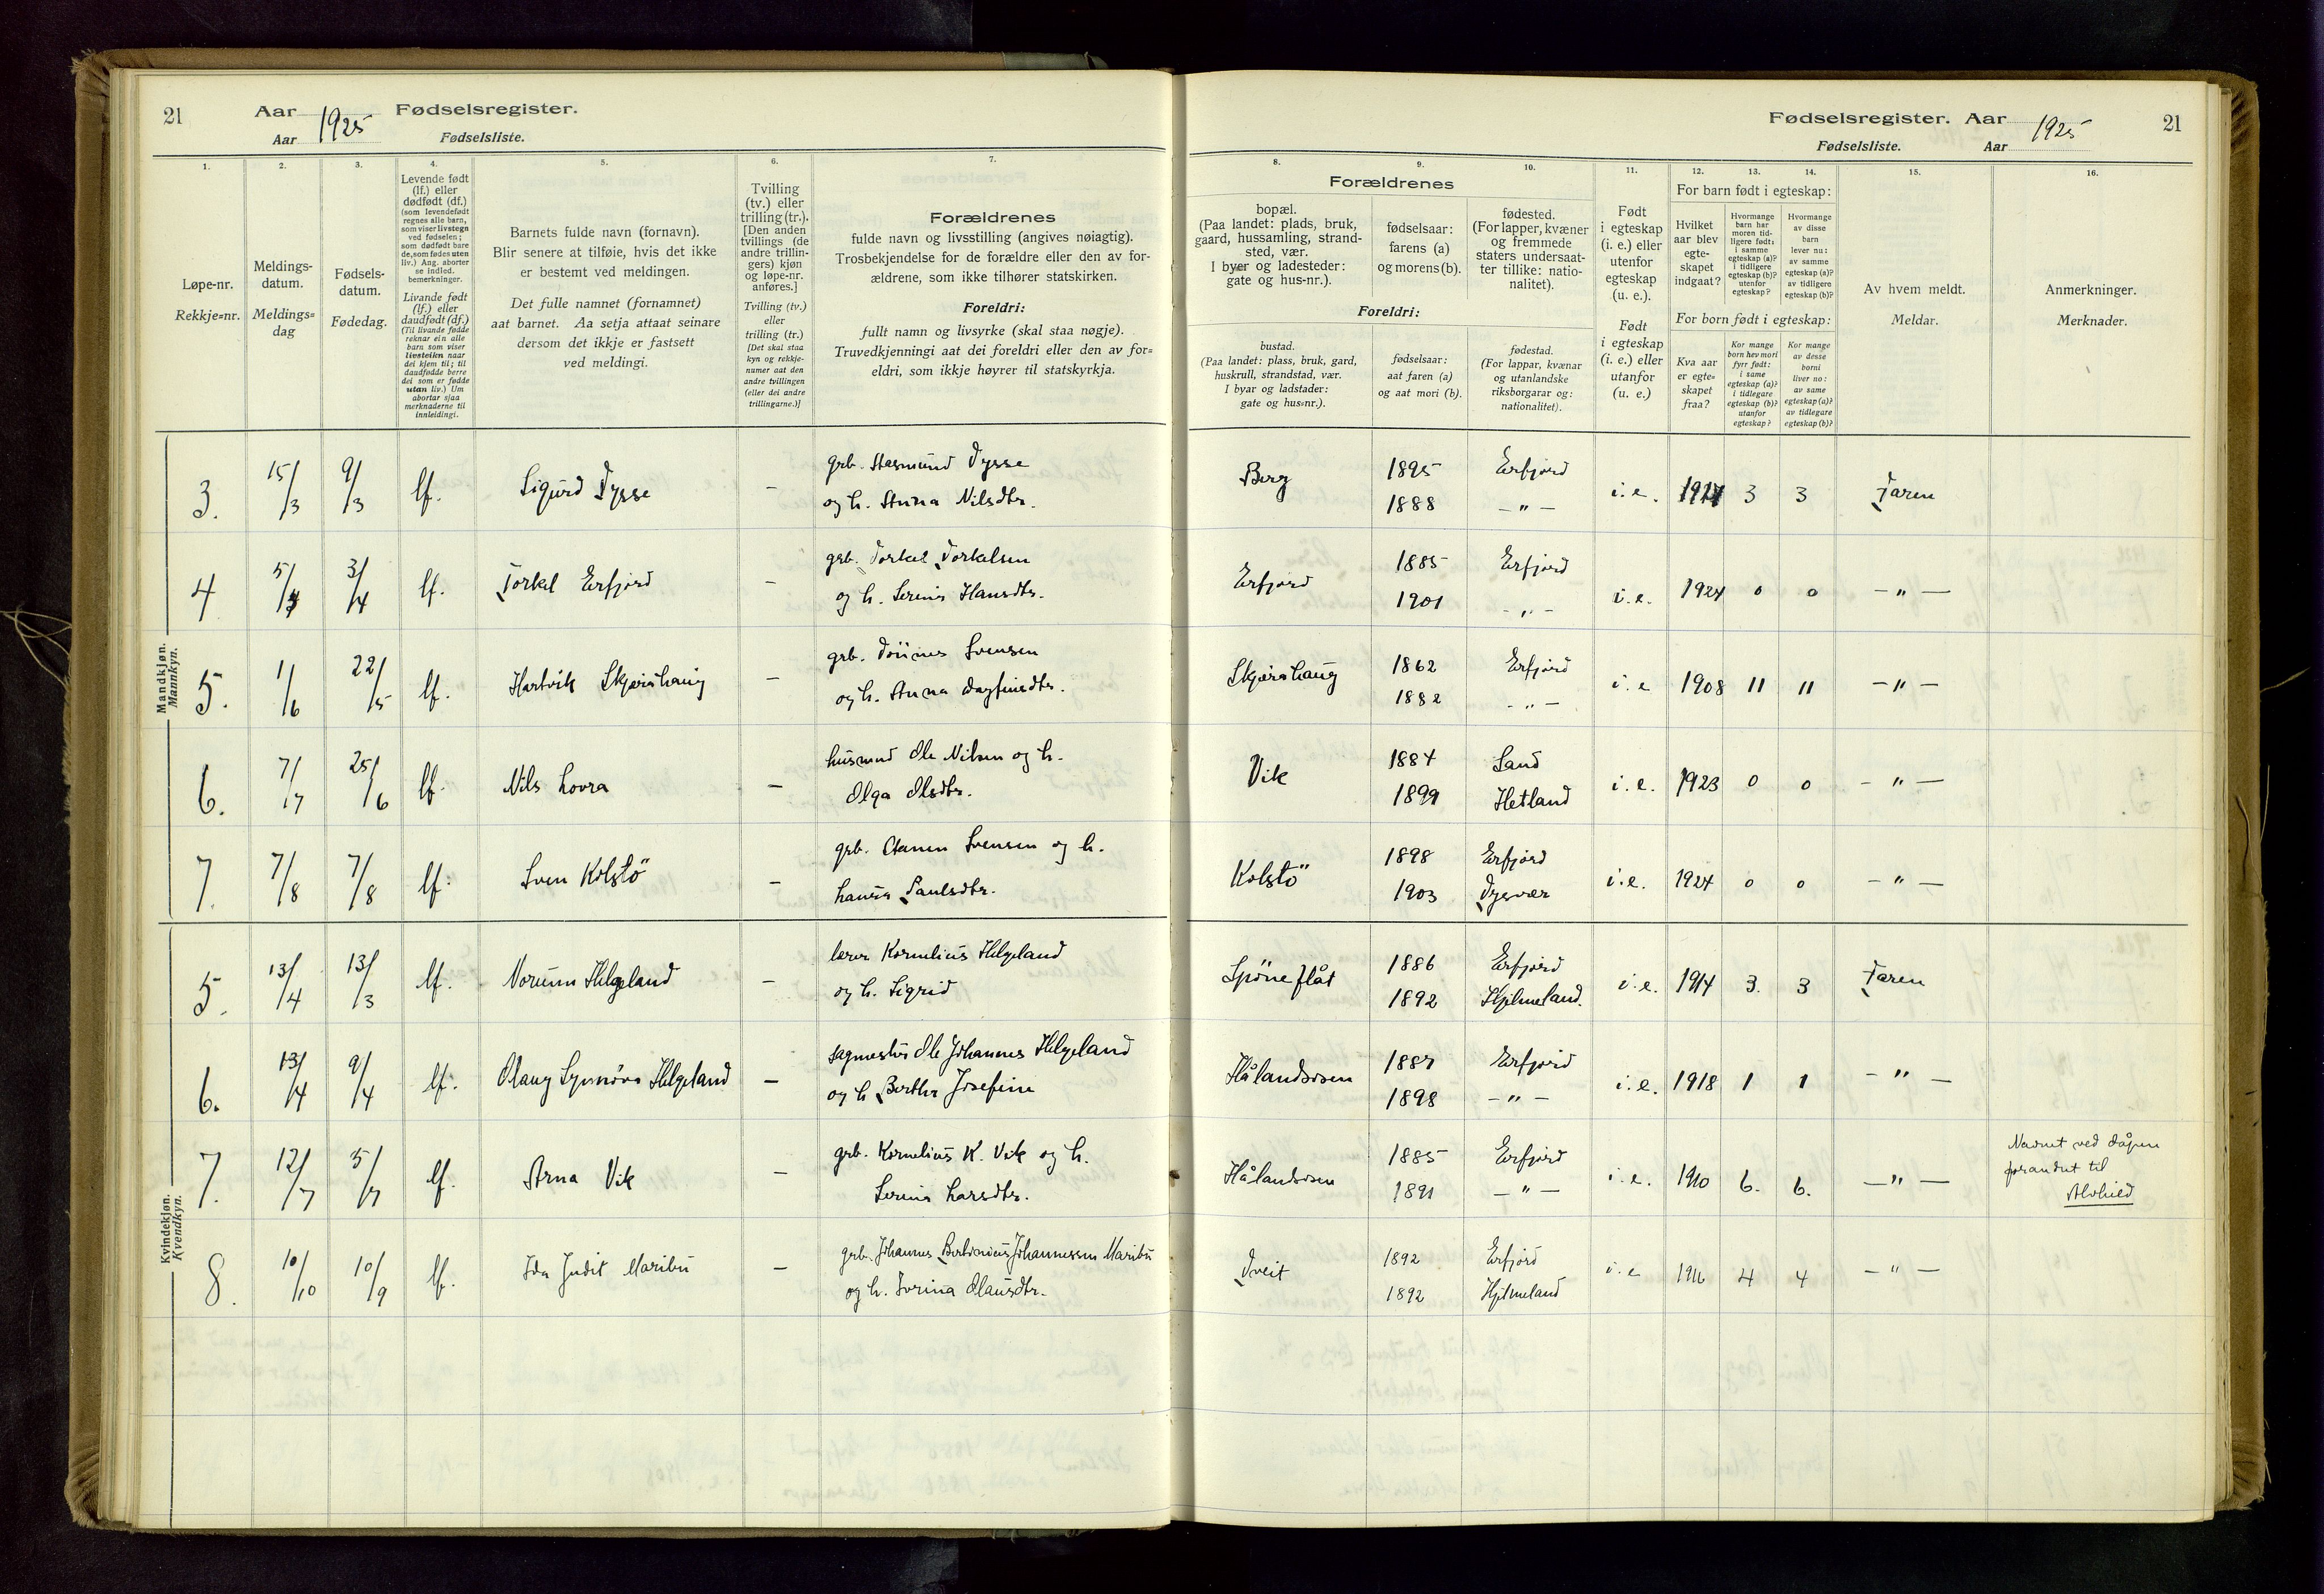 21 Aar 1925 Fødselsregister.
Aar Fødselsliste.
1. 2. 3. 4. 5. 6. 7.
Løpe-nr.
Rekkje=nr.
Meldings-
datum.
Meldings=
dag
Fødsels-
datum.
Fødedag.
Levende født
(lf.) eller
dødfødt (df.)
(som levendefødt
regnes alle barn,
som viser livstegn
ved fødselen;
som dødfødt bare
de, som fødes uten
liv.) Ang. aborter
se indled.
bemerkninger.
Livande født
(lf.) eller
daudfødt (df.)
(Til livande fødde
reknar ein alle
barn som viser
livsteikn naar
dei kjem til; til
daudfødde berre
dei som er fødde
utan liv.) Um
abortar sjaa
merknaderne til
innleidingi.
Barnets fulde navn (fornavn).
Blir senere at tilføie, hvis det ikke
er bestemt ved meldingen.
Det fulle namnet (fornamnet)
aat barnet. Aa setja attaat seinare
dersom det ikkje er fastsett
ved meldingi.
Tvilling
(tv.) eller
trilling (tr.).
[Den anden
tvillings (de
andre trillin-
gers) kjøn
og løpe-nr.
anføres.]
Tvilling (tv.)
eller
trilling (tr.)
[Det skal staa
kyn og rekkje-
numer aat den
andre tvillingen
(eller dei andre
trillingarne.)]
Forældrenes
fulde navn og livsstilling (angives nøiagtig).
Trosbekjendelse for de forældre eller den av for-
ældrene, som ikke tilhører statskirken.
Foreldri:
fullt namn og livsyrke (skal staa nøgje).
Truvedkjenningi aat dei foreldri eller den av for=
eldri, som ikkje høyrer til statskyrkja.
Mandkjøn.
Mannkyn.
3. 15/3 9/3 lf. Sigurd Tysse – grb. Aasmund Tysse
og h. Anna Nilsdtr.
4 5/4 3/4 lf. Torkel Erfjord – grb. Torkel Torkelsen
og h. Serina Hansdtr.
5. 1/6 22/5 lf. Hartvik Skjørshaug – grb. Svensen
og h. Anna Dagfinsdtr.
6. 7/7 25/6 lf. Nils Lovra – husmnd Ole Nilsen og h.
Olga Olsdtr.
7. 7/8 7/8 lf. Sven Kolstö – grb. Svensen og h.
Paulsdtr.
Kvindekjøn.
Kvendkyn.
5. 13/4 13/3 lf. Norunn Helgeland – lærer Kornelius Helgeland
og h. Sigrid
6. 13/4 9/4 lf. Olaug Synnöva Helgeland – Ole Johannes Helgeland
og h Bertha Josefine
7. 12/7 5/7 lf. Arna Vik – grb. Kornelius K. Vik og h.
Serina Larsdtr.
8. 10/10 10/9 lf. Ida Judit Maribu – grb. Johannes Johannessen Maribu
og h. Olausdtr.
Fødselsregister. Aar 1925 21
Fødselsliste. Aar
8. 9. 10. 11. 12. 13. 14. 15. 16.
Forældrenes
bopæl.
(Paa landet: plads, bruk,
gaard, hussamling, strand-
sted, vær.
I byer og ladesteder:
gate og hus-nr.).
fødselsaar:
farens (a)
og morens (b).
fødested.
(For lapper, kvæner
og fremmede
staters undersaat-
ter tillike: natio-
nalitet).
Foreldri:
bustad.
(Paa landet: plass, bruk, gard,
huskrull, strandstad, vær.
I byar og ladstader:
gate og hus=nr.).
fødselsaar:
aat faren (a)
og aat mori (b).
fødestad.
(For lappar, kvænar
og utanlandske
riksborgarar og:
nationalitet).
Født
i egteskap
(i. e.) eller
utenfor
egteskap
(u. e.).
Født
i egteskap
(i. e.) eller
utanfor
(u. e.)
For barn født i egteskap:
Hvilket
aar blev
egte-
skapet
indgaat?
Hvormange
barn har
moren tid-
ligere født:
i samme
egteskap (a)?
i tidligere
egteskap (b)?
utenfor
egteskap?
Hvormange
av disse
barn
lever nu:
av samme
egteskap (a)?
av tidligere
egteskap (b)?
For born født i egteskap:
Kva aar
er egte=
skapet
fraa?
Kor mange
born hev mori
fyrr født:
i same
egteskap (a)?
i tidlegare
egteskap (b)?
utanfor
egteskap?
Kor mange
av desse
borni
liver no:
av same
egteskap (a)?
av tidlegare
egteskap (b)?
Av hvem meldt.
Meldar.
Anmerkninger.
Merknader.
Berg 1895 Erfjord i.e. 1921 3 3 Faren
1888 – " –
Erfjord 1885 Erfjord i.e. 1924 0 0 – " –
1901 – " –
Skjørshaug 1862 Erfjord i.e 1908 11 11 – " –
1882 – " –
Vik 1884 Sand i.e. 1923 0 0 – " –
1899 Hetland
Kolstö 1898 Erfjord i.e. 1924 0 0 – " –
1903 Tysvær
Spöneflåt 1886 Erfjord i.e. 1914 3. 3 Faren
1892 Hjelmeland.
Hålandsosen 1887 Erfjord i.e. 1918 1 1 – " –
1898 – " –
Hålandsosen 1885 Erfjord i.e. 1910 6. 6. – " – Navnet ved dåpen
1891 – " – forandret til
Alvhild
Tveit 1892 Erfjord i.e 1916 4 4 – " –
1892 Hjelmeland